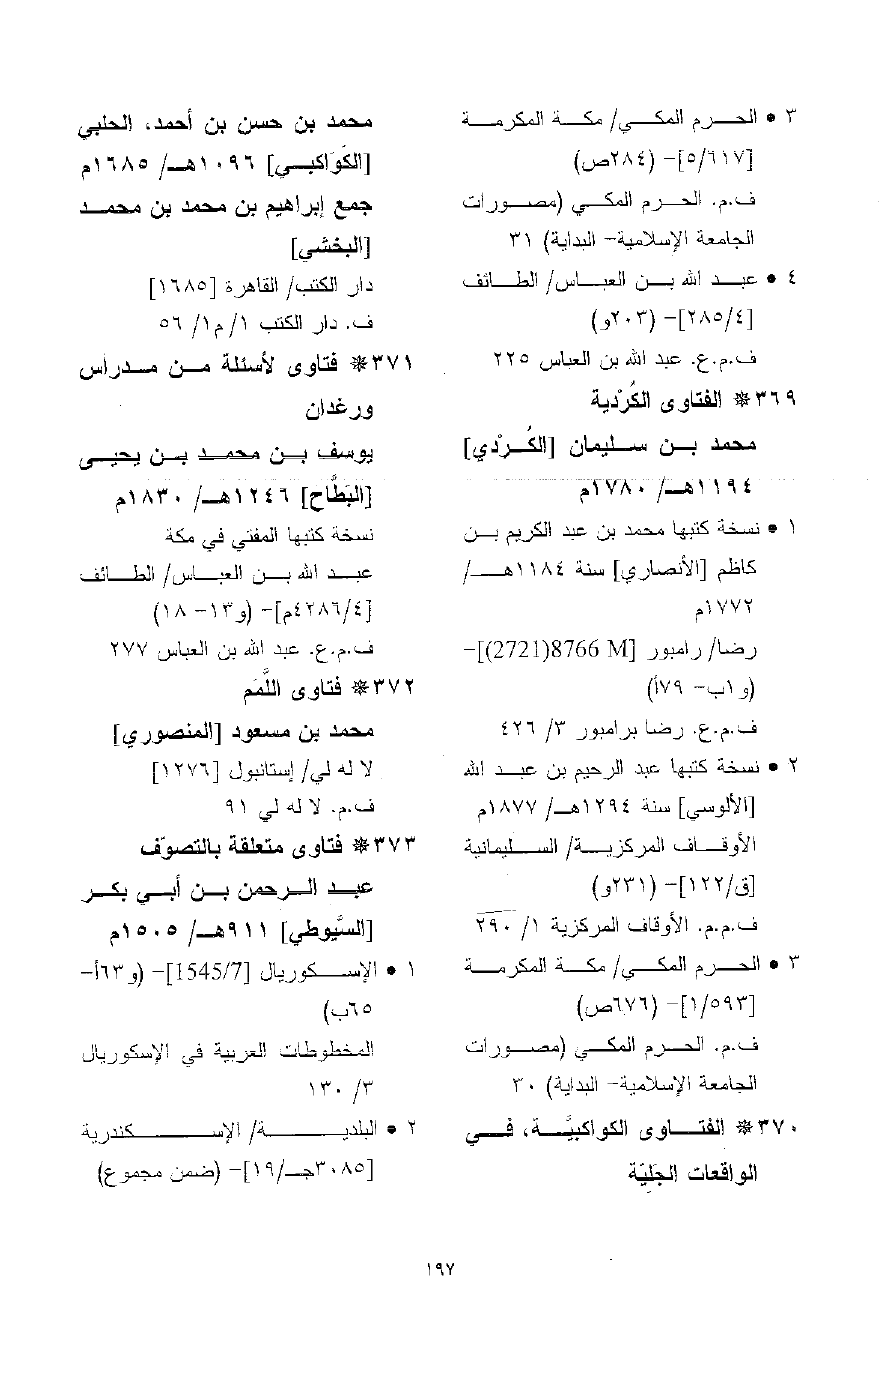 ٣ • الحرم المكي/ مكة المكرمة
[٥/٦١٧]- (٢٨٤ص)
ف.م. الحرم المكي (مصورات
الجامعة الإسلامية- البداية) ٣١
٤ • عبد الله بن العباس/ الطائف
[٢٨٥/٤]- (٢٠٣و)
ف.م.ع. عبد الله بن العباس ٢٢٥
٣٦٩* الفتاوى الكُرْدية
محمد بن سليمان [الكُرْدي]
١١٩٤هـ/ ١٧٨٠م
١ • نسخة كتبها محمد بن عبد الكريم بن
كاظم [الأنصاري] سنة ١١٨٤هـ/
١٧٧٢م
رضا/ رامبور [2721)8766 M)]-
(و١ب- ٧٩أ)
ف.م.ع. رضا برامبور ٣/ ٤٢٦
٢ • نسخة كتبها عبد الرحيم بن عبد الله
[الألوسي] سنة ١٢٩٤هـ/ ١٨٧٧م
الأوقاف المركزية/ السليمانية
[ق/١٢٢]- (٢٣١و)
ف.م.م. الأوقاف المركزية ١/ ٢٩٠
٣ • الحرم المكي/ مكة المكرمة
[١/٥٩٣]- (٦٧٦ص)
ف.م. الحرم المكي (مصورات
الجامعة الإسلامية- البداية) ٣٠
٣٧٠* الفتاوى الكواكبيَّة، في
الواقعات الجَلِيّة
محمد بن حسن بن أحمد، الحلبي
[الكَوَاكبي] ١٠٩٦هـ/ ١٦٨٥م
جمع إبراهيم بن محمد بن محمد
[البخشي]
دار الكتب/ القاهرة [١٦٨٥]
ف. دار الكتب ١/ م١/ ٥٦
٣٧١* فتاوى لأسئلة من مدراس
ورغدان
يوسف بن محمد بن يحيى
[البَطَّاح] ١٢٤٦هـ/ ١٨٣٠م
نسخة كتبها المفتي في مكة
عبد الله بن العباس/ الطائف
[٤٢٨٦/٤م]- (و١٣- ١٨)
ف.م.ع. عبد الله بن العباس ٢٧٧
٣٧٢* فتاوى اللَّمَم
محمد بن مسعود [المنصوري]
لا له لي/ إستانبول [١٢٧٦]
ف.م. لا له لي ٩١
٣٧٣* فتاوى متعلقة بالتصوّف
عبد الرحمن بن أبي بكر
[السَّيوطي] ٩١١هـ/ ١٥٠٥م
١ • الإسكوريال [1545/7]- (و٦٣أ-
٦٥ب)
المخطوطات العربية في الإسكوريال
٣/ ١٣٠
٢ • البلدية/ الإسكندرية
[٣٠٨٥جـ/١٩]- (ضمن مجموع)
١٩٧